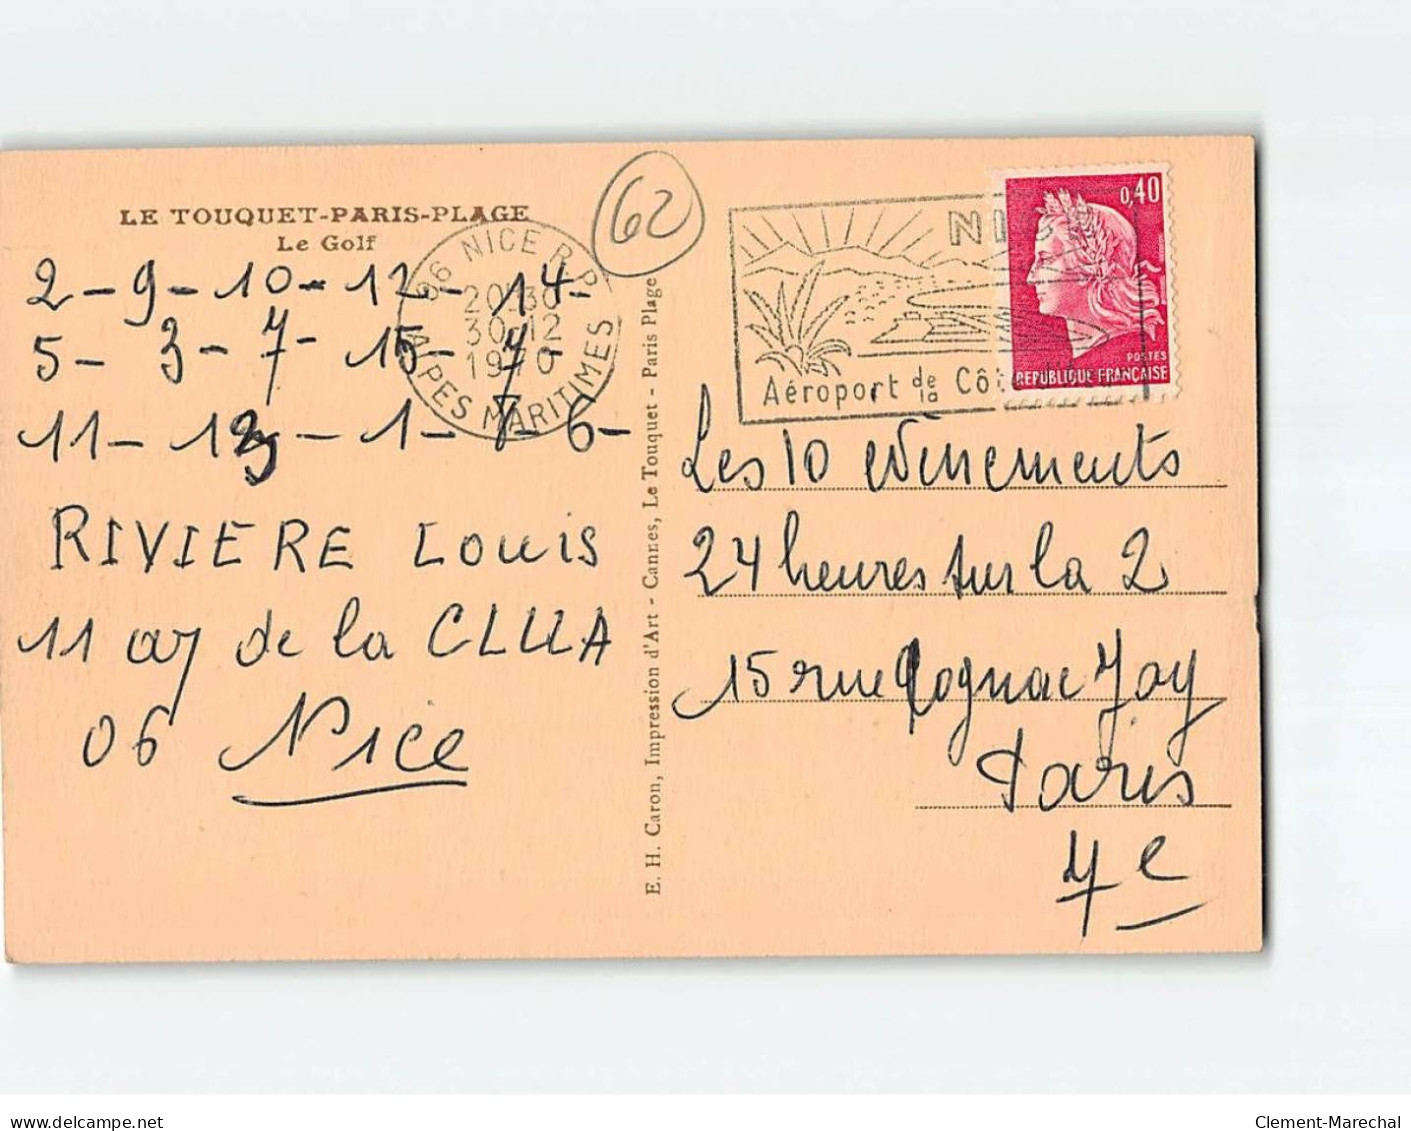 LE TOUQUET-PARIS-PLAGE
Le Golf
62
2-9-10-12-14-
5-3-7-15-4-
11-13-1-7-6-
RIVIERE Louis
11 av de la CLUA
06 Nice
06 NICE R.P.
20H30
30-12
1970
ALPES MARITIMES
E. H. Caron, Impression d'Art - Cannes, Le Touquet - Paris Plage
NICE
Aéroport de la Côte
0,40
POSTES
REPUBLIQUE FRANÇAISE
Les 10 evènements
24 heures sur la 2
15 rue Cognac Jay
Paris
7e
delcampe.net
Clement-Marechal